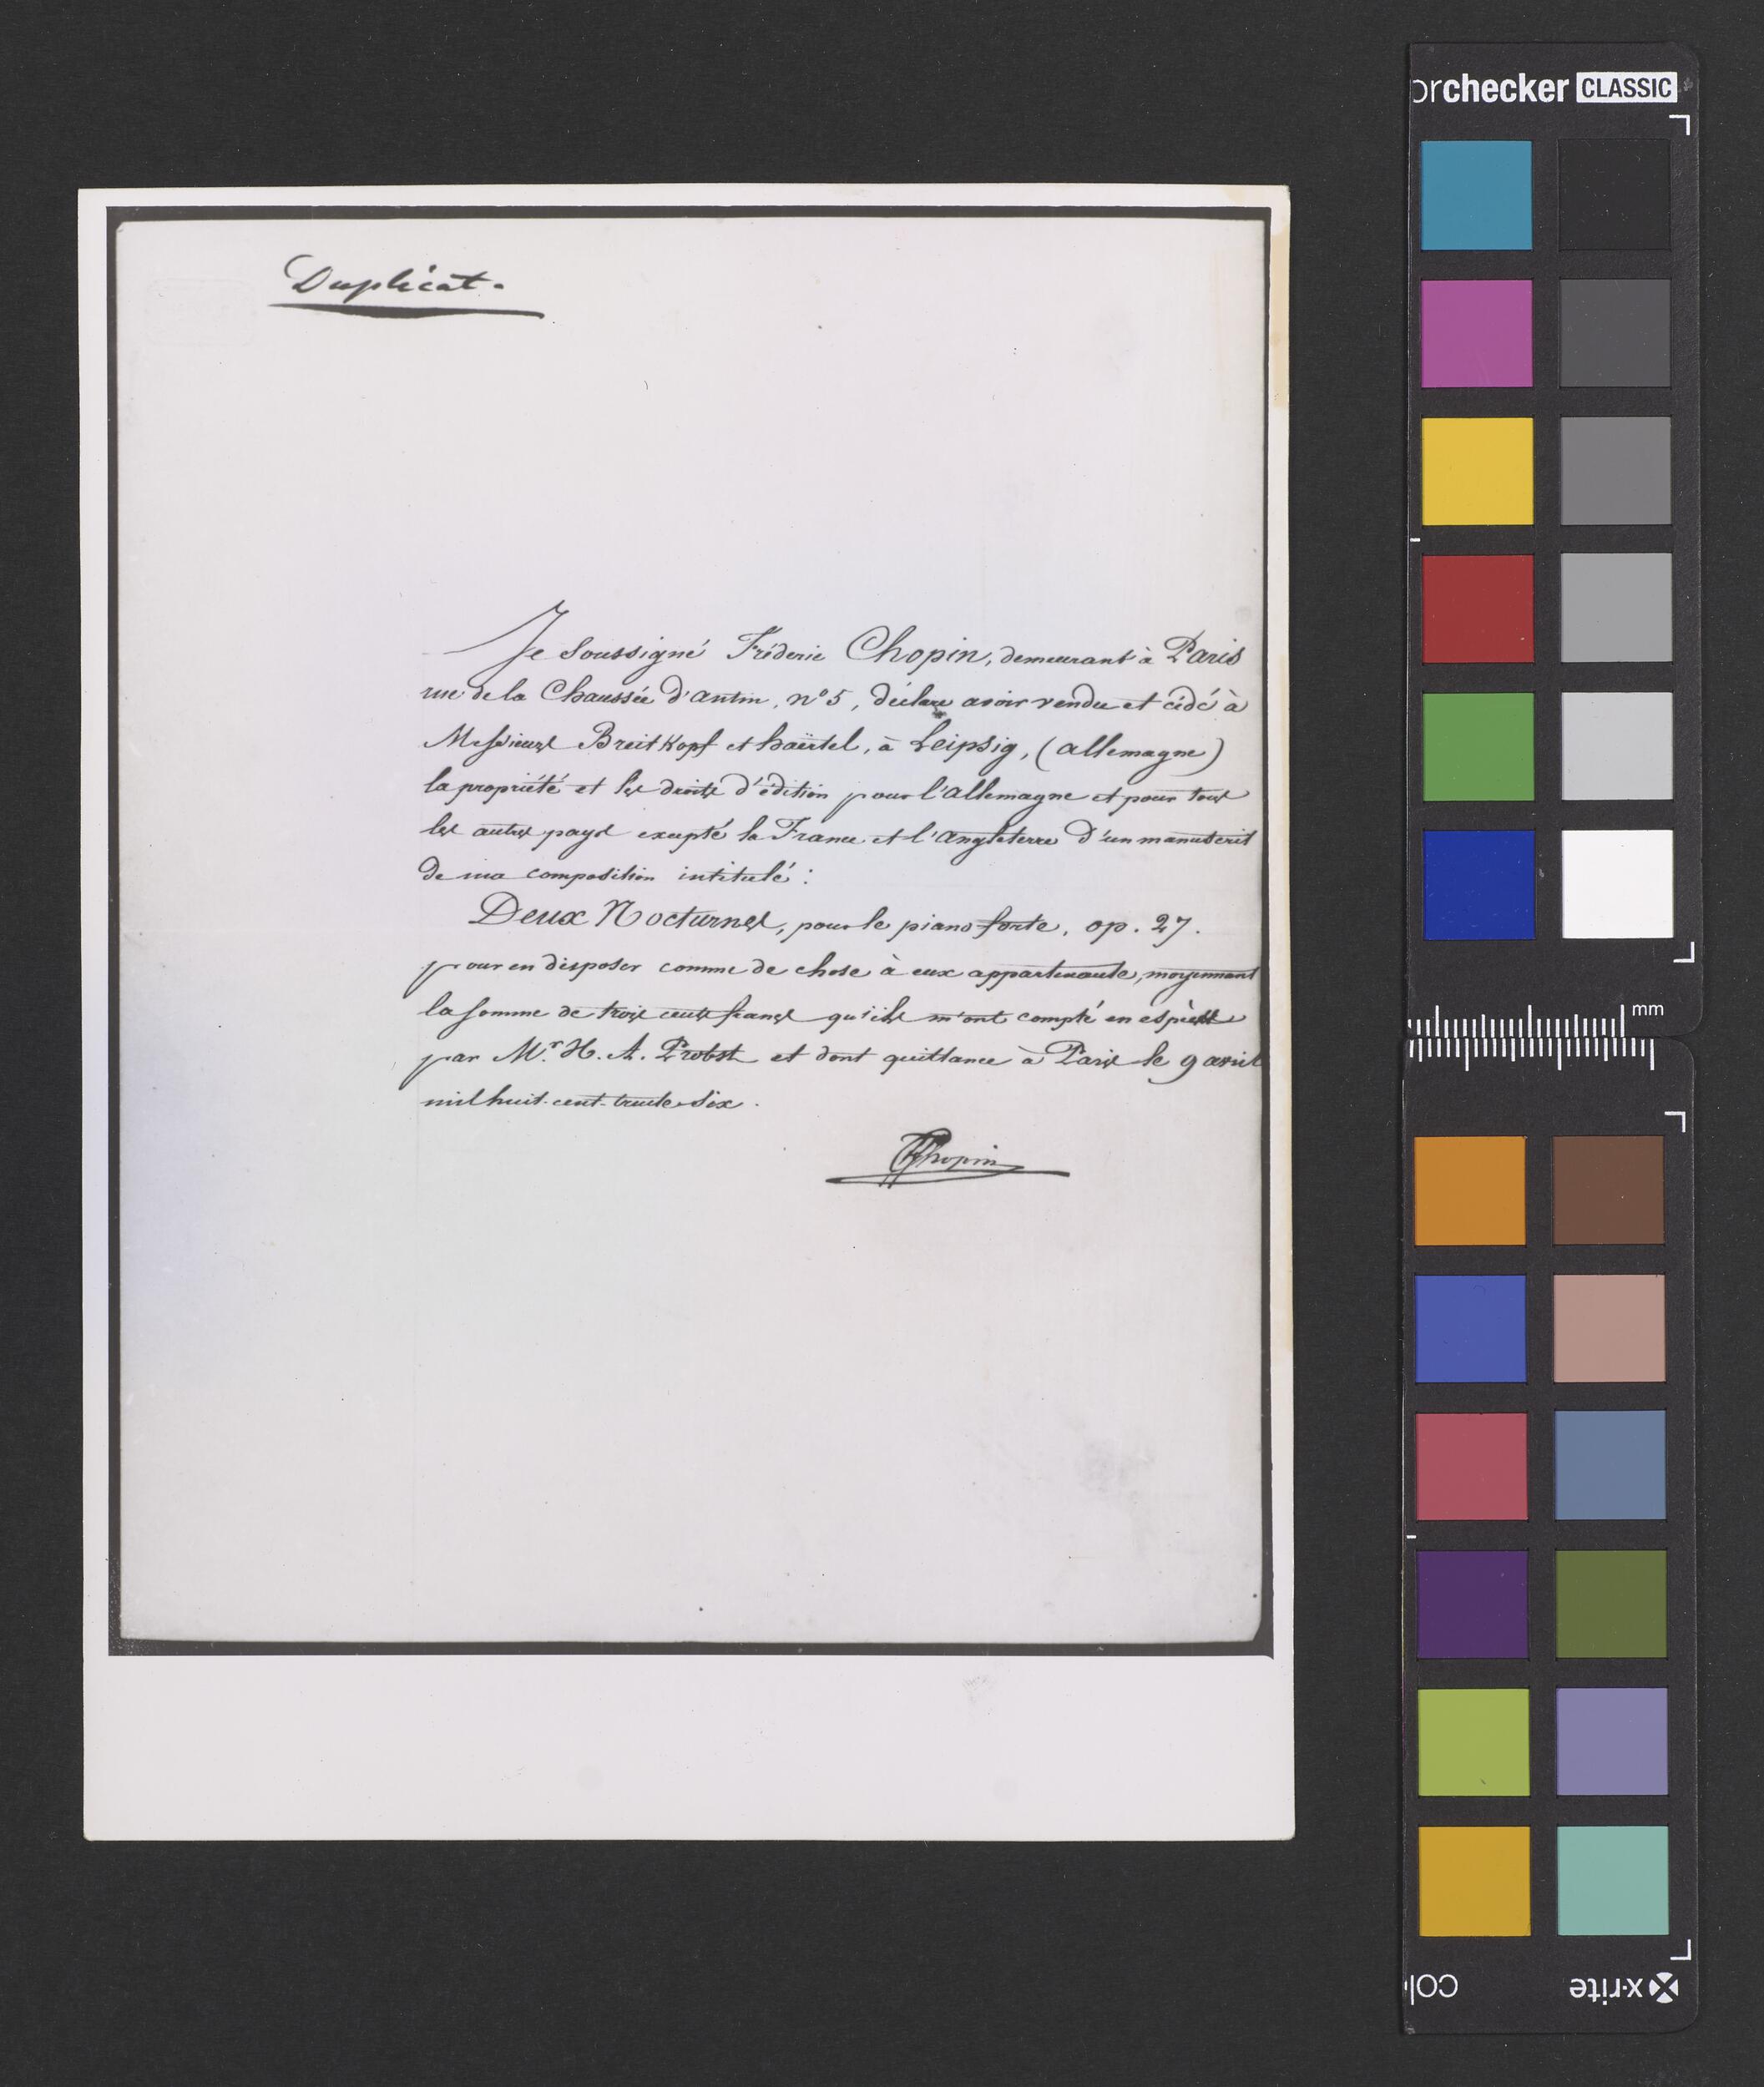 Duplicat.
Je soussigné Fréderic Chopin, demeurant à Paris
rue de la Chaussée d'antin, nº 5, déclare avoir vendu et cédé à
Messieurs Breitkopf et haërtel, à Leipsig, (allemagne)
la propriété et les droits d'édition pour l'allemagne et pour tous
les autres pays excepté la France et l'angleterre d'un manuscrit
de ma composition intitulé :
Deux Nocturnes, pour le piano forte, op. 27.
pour en disposer comme de chose à eux appartenante, moyennant
la somme de trois cents francs qu'ils m'ont compté en espèces
par Mr. H. A. Probst et dont quittance à Paris le 9 avril
mil huit-cent-trente-six.
FChopin
orchecker CLASSIC
mm
x-rite
col